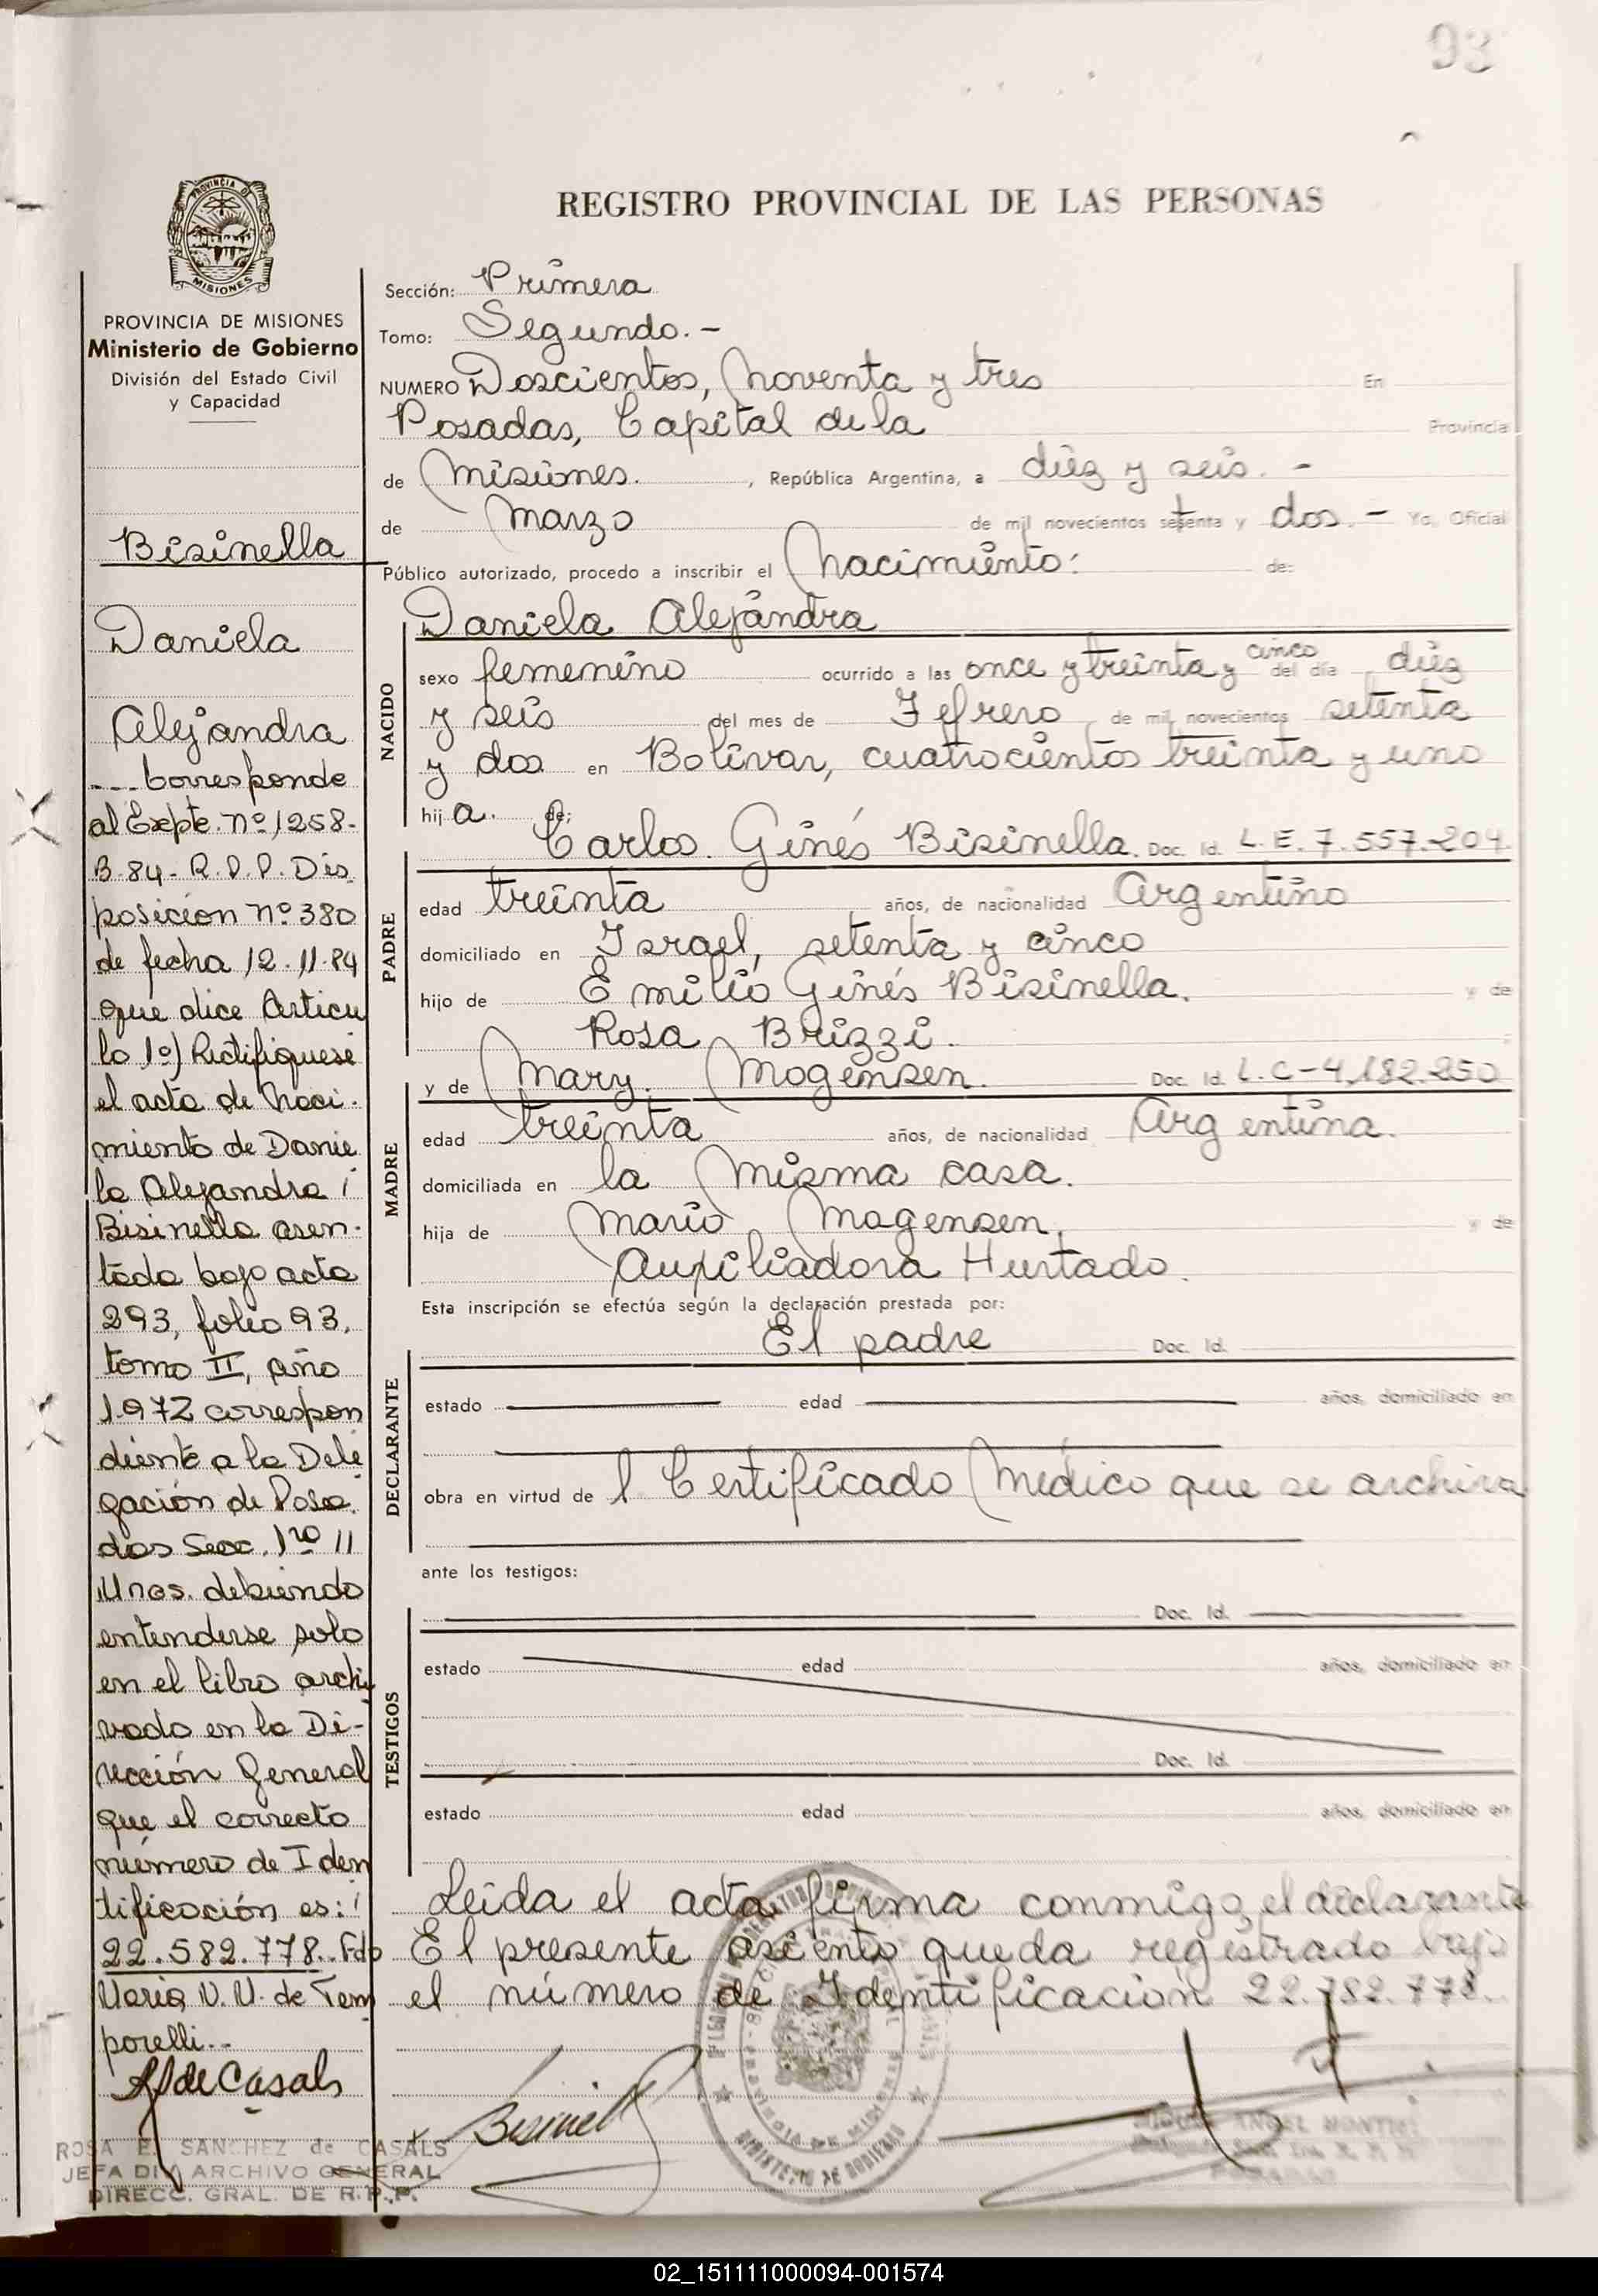 93
REGISTRO PROVINCIAL DE LAS PERSONAS
PROVINCIA DE
MISIONES
PROVINCIA DE MISIONES
Ministerio de Gobierno
División del Estado Civil
y Capacidad
Bisinella
Daniela
Alejandra
---- Corresponde
al Expte. nº 1258-
B-84- R.P.P. Dis
posición Nº 380
de fecha 12-11-84
que dice Articu
lo 1º) Rectifíquese
el acta de Naci-
miento de Danie
la Alejandra
Bisinella asen-
tada bajo acta
293, folio 93,
tomo II, año
1.972 correspon
diente a la Dele
gación de Posa
das Secc. 1ra
Mnes. debiendo
entenderse solo
en el libro archi
vado en la Di-
rección General
que el correcto
número de Iden
tificación es:
22.582.778. Fdo
de Tem
porelli.-
R S de Casals
ROSA E. SANCHEZ de CASALS
JEFA DIV ARCHIVO GENERAL
DIRECC. GRAL. DE R.P.P.
Sección: Primera
Tomo: Segundo.-
NUMERO Doscientos, Noventa y tres En
Posadas, Capital de la Provincia
de Misiones. , República Argentina, a diez y seis. -
de Marzo de mil novecientos setenta y dos. - Yo, Oficial
Público autorizado, procedo a inscribir el Nacimiento: de:
NACIDO
Daniela Alejandra
sexo femenino ocurrido a las once y treinta y cinco del día diez
y seis del mes de Febrero de mil novecientos setenta
y dos en Bolívar, cuatrocientos treinta y uno
hija. de:
PADRE
Carlos Ginés Bisinella. Doc. Id. L.E. 7.557.204.
edad treinta años, de nacionalidad Argentino
domiciliado en Israel, setenta y cinco
hijo de Emilio Ginés Bisinella. y de
Rosa Brizzi.
MADRE
y de Mary Mogensen. Doc. Id. L.C-4,182.250
edad treinta años, de nacionalidad Argentina.
domiciliada en la misma casa.
hija de Mario Mogensen, y de
Auxiliadora Hurtado.
Esta inscripción se efectúa según la declaración prestada por:
DECLARANTE
El padre Doc. Id.
estado edad años, domiciliado en
obra en virtud de l Certificado Médico que se archiva
ante los testigos:
TESTIGOS
Doc. Id.
estado edad años, domiciliado en
Doc. Id.
estado edad años, domiciliado en
Leida el acta firma conmigo, el declarante
El presente asiento queda registrado bajo
el número de Identificación 22.782.778.
Bisinella
MINISTERIO DE GOBIERNO
ANGEL MONTIEL
02_151111000094-001574